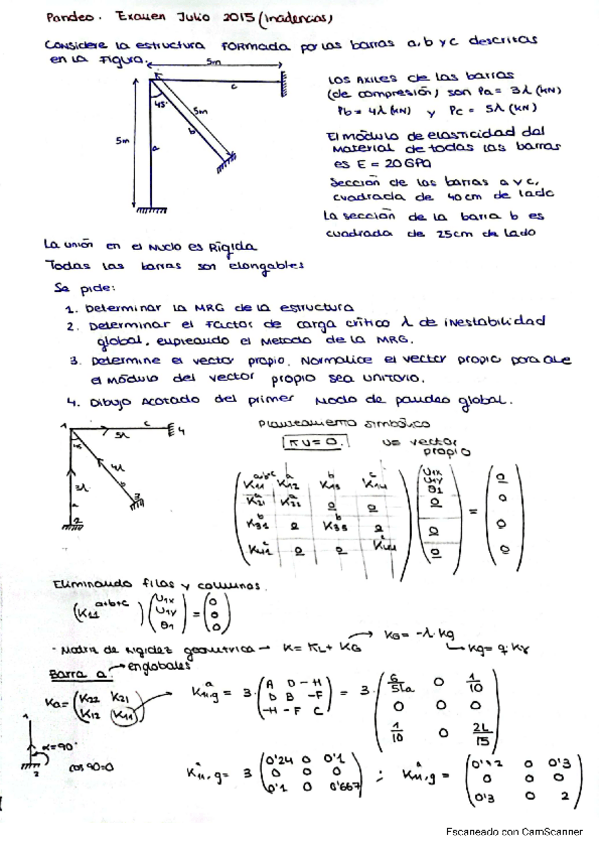 Pandeo. Examen Julio 2015 (Inadencias)
Considere la estructura formada por las barras a, b y c descritas
en la figura.
5m
c
45°
5m
b
5m
a
Los axiles de las barras
(de compresión) son Pa = 3λ (kN)
Pb = 4λ (kN) y Pc = 5λ (kN)
El módulo de elasticidad del
material de todas las barras
es E = 20GPa
Sección de las barras a y c,
cuadrada de 40cm de lado
La sección de la barra b es
cuadrada de 25cm de lado
La unión en el nudo es Rígida
Todas las barras son elongables
Se pide:
1. Determinar la MRG de la estructura
2. Determinar el factor de carga crítico λ de inestabilidad
global, empleando el metodo de la MRG.
3. Determine el vector propio. Normalice el vector propio para que
el módulo del vector propio sea unitario.
4. Dibujo acotado del primer modo de pandeo global.
1
5λ
c
4
4λ
b
3
3λ
a
2
Planteamiento simbólico
KU=0.
U= vector
propio
K11 a+b+c K12 a K13 b K14 c U1x 0
K21 a K22 a 0 0 U1y θ1 0
K31 b 0 K33 b 0 0 0
K41 c 0 0 K44 c 0 0
Eliminando filas y columnas.
(K11 a+b+c) (U1x U1y θ1) = (0 0 0)
Matriz de rigidez geometrica → K = KL + KG
KG = -λ kg
kg = q·Kγ
Barra a: → englobales
Ka = (K22 K21 K12 K11)
K11,g a = 3·(A D -H D B -F -H -F C) = 3·(6/5La 0 1/10 0 0 0 1/10 0 2L/15)
1
α=90°
2
cos 90=0
K11,g a = 3 (0'24 0 0'1 0 0 0 0'1 0 0'667) ; K11,g a = (0'72 0 0'3 0 0 0 0'3 0 2)
Escaneado con CamScanner